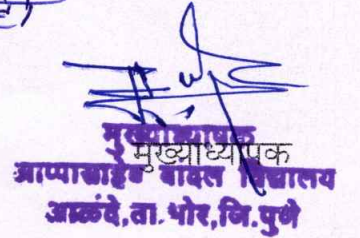 मुख्याध्यापक
मुख्याध्यापक
आप्पासाहेब बांदल विद्यालय
आळंदे, ता. भोर, जि. पुणे